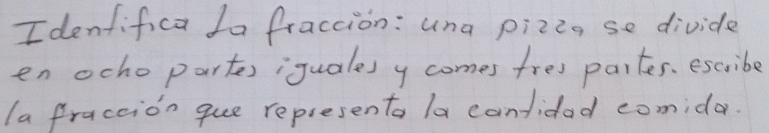 Identifica la fracción: una pizza se divide
en ocho partes iguales y comes tres partes. escribe
la fracción que representa la cantidad comida.